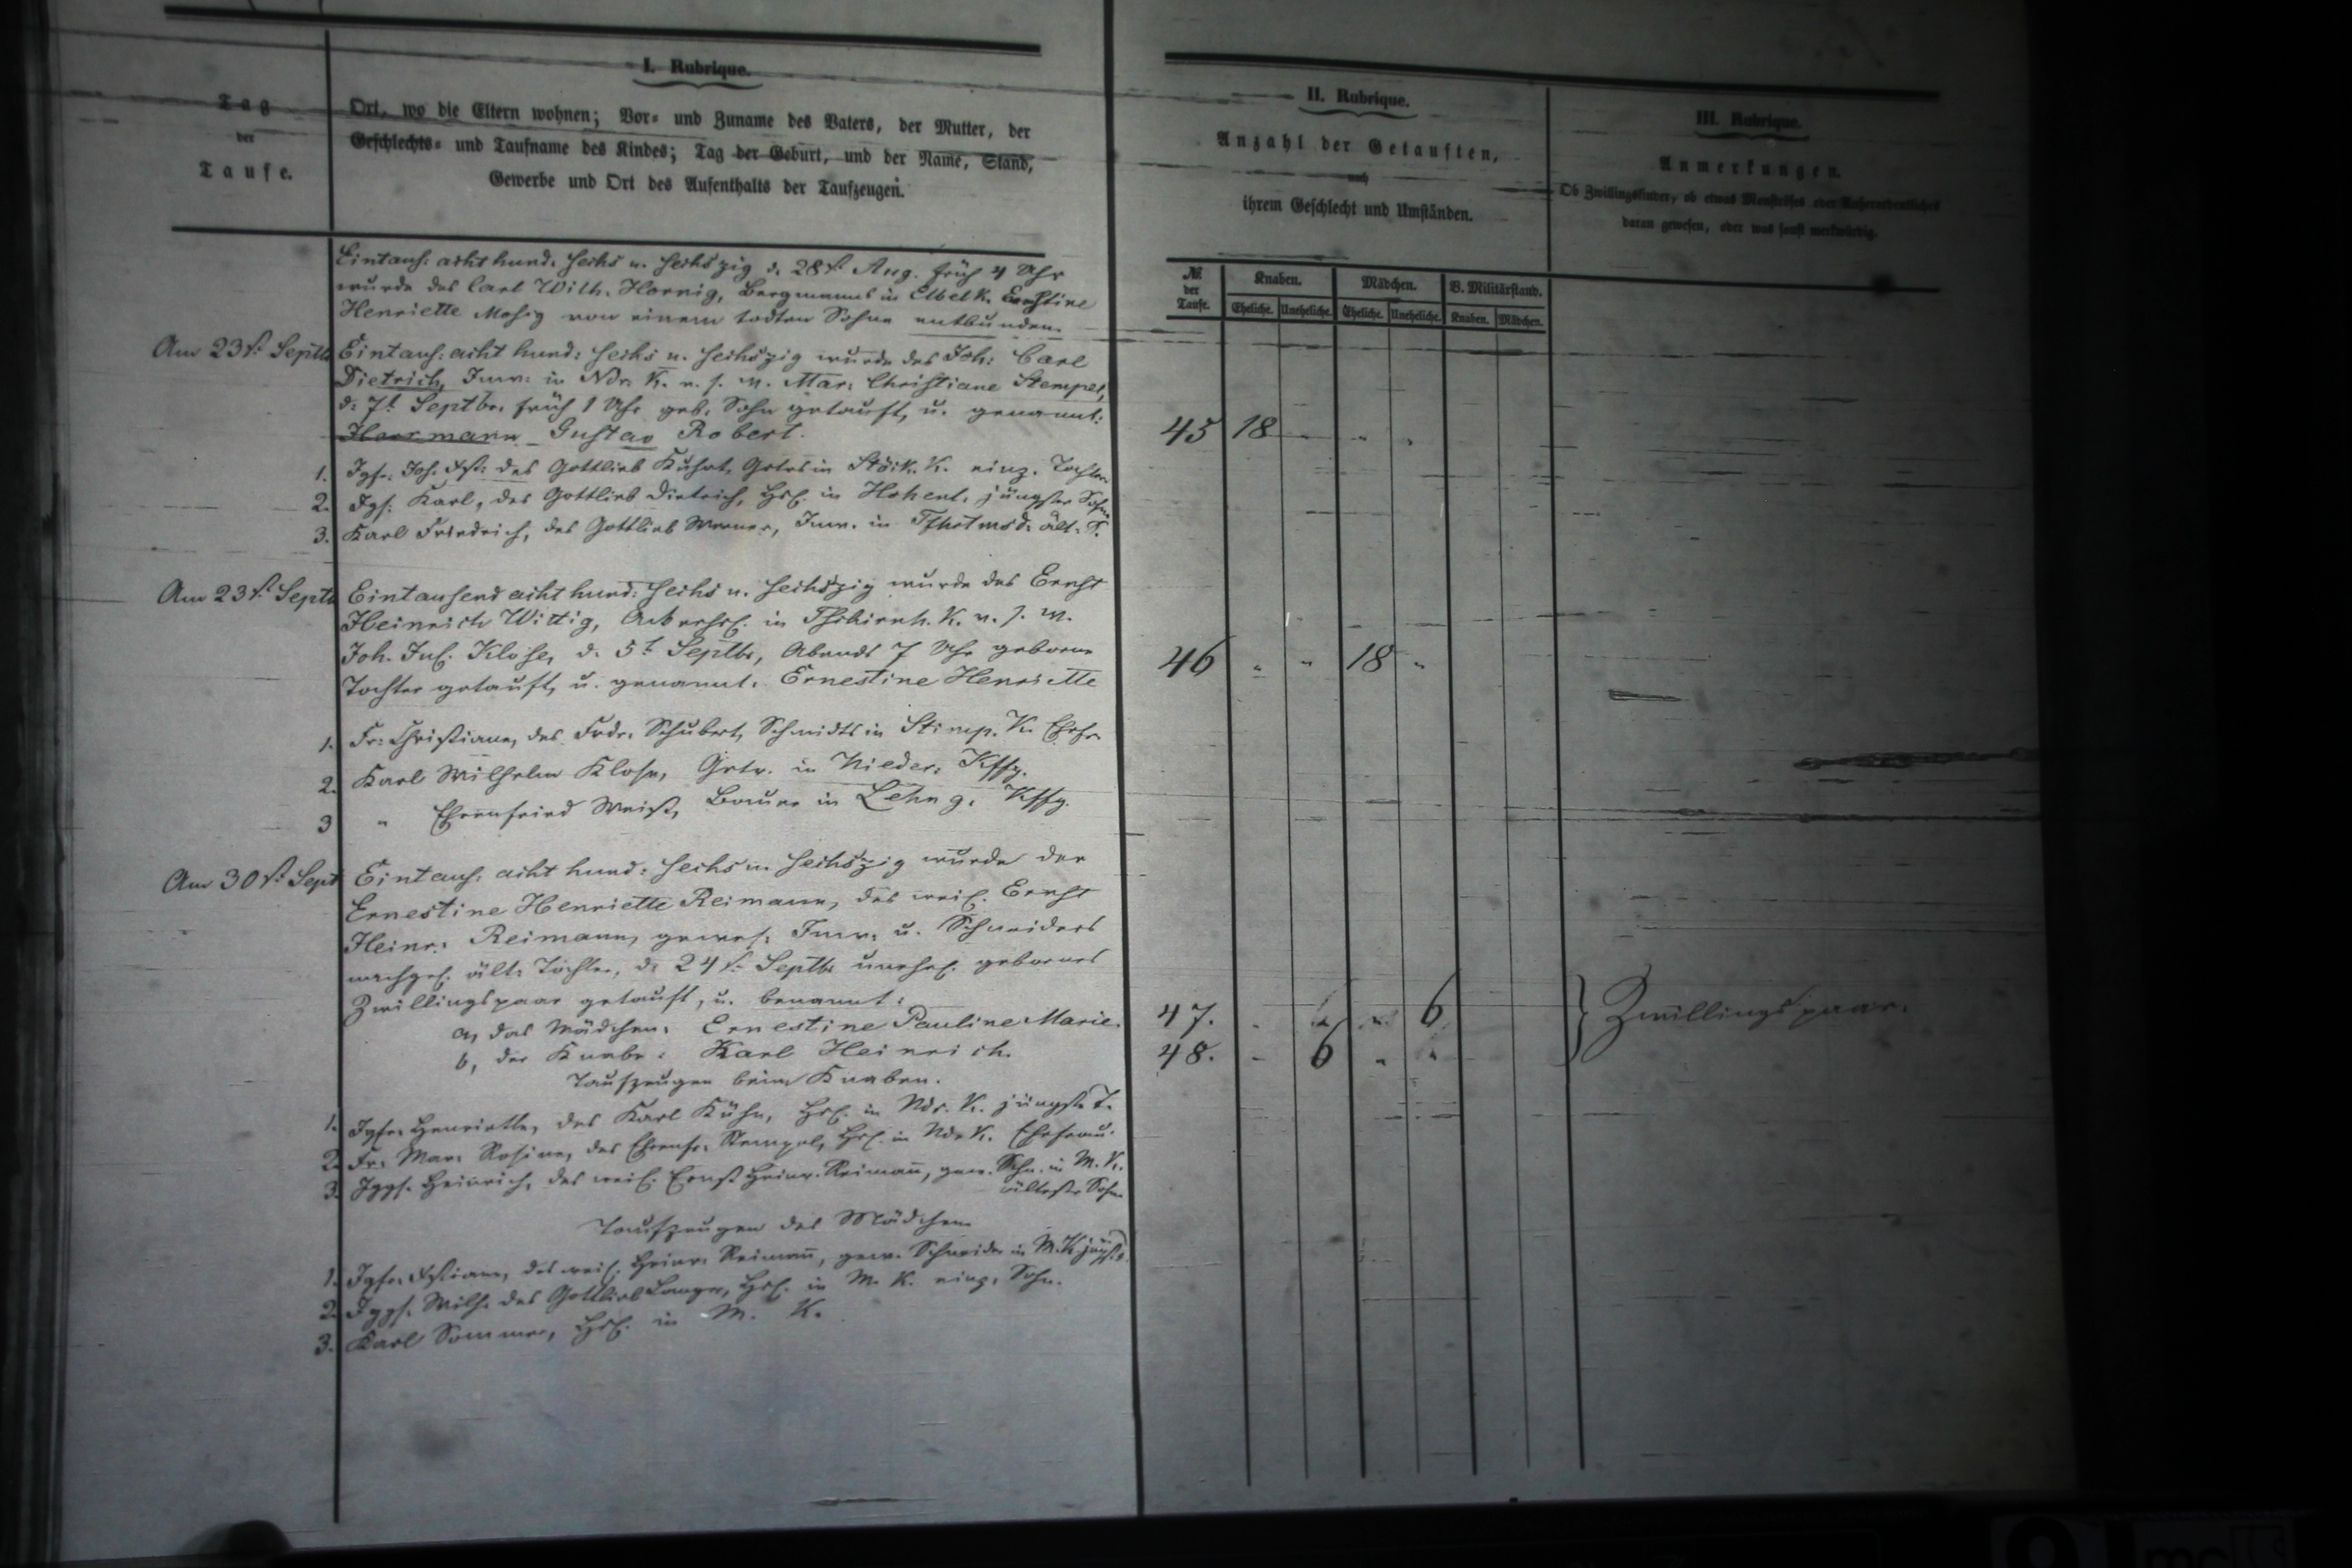 I. Rubrique.
Tag
der
Taufe.
Ort, wo die Eltern wohnen; Vor= und Zuname des Vaters, der Mutter, der
Geschlechts= und Taufname des Kindes; Tag der Geburt, und der Name, Stand,
Gewerbe und Ort des Aufenthalts der Taufzeugen.
II. Rubrique.
Anzahl der Getauften,
nach
ihrem Geschlecht und Umständen.
III. Rubrique.
Anmerkungen.
Ob Zwillingskinder, ob etwas Monströses oder Außerordentliches
daran gewesen, oder was sonst merkwürdig.
Nr. der Taufe. Knaben. Mädchen. B. Militärstand.
Eheliche. Uneheliche. Eheliche. Uneheliche. Knaben. Mädchen.
Eintaus: acht hund. sechs u. sechszig d. 28st. Aug. früh 4 Uhr
wurde des Carl Wilh. Hornig, Bergmanns in K. Ernstine
Henriette Mosig von einem todten Sohne entbunden.
Am 23st. Septb Eintaus: acht hund: sechs u. sechszig wurde des Joh: Carl
Dietrich, Inw: in Ndr. K. u. s. w. Mar: Christiane Stempel,
d: 7t Septbr. früh 1 Uhr geb. Sohn getauft, u. genannt:
Herrmann Gustav Robert. 45 18
1. Jgfr: Joh. des Gottlieb Grtrs in K. einz. Tochter
2. Jgs: Karl, des Gottlieb Dietrich, Hsl. in Hohent. jüngster Sohn
3. Karl Friedrich, des Gottlieb Werner, Inw. in ält. S.
Am 23st. Septb Eintausend acht hund: sechs u. sechszig wurde des Ernst
Heinrich Wittig, in Tschirnh. K. u. s. w.
Joh. Jul. Klose, d. 5t Septbr, Abends 7 Uhr geborne
Tochter getauft, u. genannt. Ernestine Henriette 46 " " 18 "
1. Fr: Christiane, des Frdr. Schubert, Schmidts in Stimp. K. Ehefr.
2. Karl Wilhelm Klose, Grtr. in Nieder: Kffg.
3 " Ehrenfried Weiß, Bauer in Lehng. Kffg.
Am 30st. Sept Eintaus: acht hund: sechs u. sechszig wurde der
Ernestine Henriette Reimann, des weil. Ernst
Heinr. Reimann, gewes. Inw. u. Schneiders
nachgel. ält. Tochter, d. 24st. Septbr unehel. gebornes
Zwillingspaar getauft, u. benannt:
a, das Mädchen: Ernestine Pauline Marie. 47. 6 Zwillingspaar.
b, der Knabe: Karl Heinrich. 48. 6
Taufzeugen beim Knaben.
1. Jgfr. Henriette, des Karl Kühn, Hsl. in Ndr. K. jüngste T.
2. Fr. Mar. Rosine, des Ehrenfr. Stempel, Hsl. in Ndr K. Ehefrau.
3. Jggs. Heinrich, des weil. Ernst Heinr. Reimann, gew. Schn. in M. K.
ältester Sohn
Taufzeugen des Mädchen
1. Jgfr. des weil. Heinr. Reimann, gew. Schneider in M. K.
2. Jggs. Wilh. des Gottlieb Langer, Hsl. in M. K. einz. Sohn.
3. Karl Sommer, Hsl. in M. K.